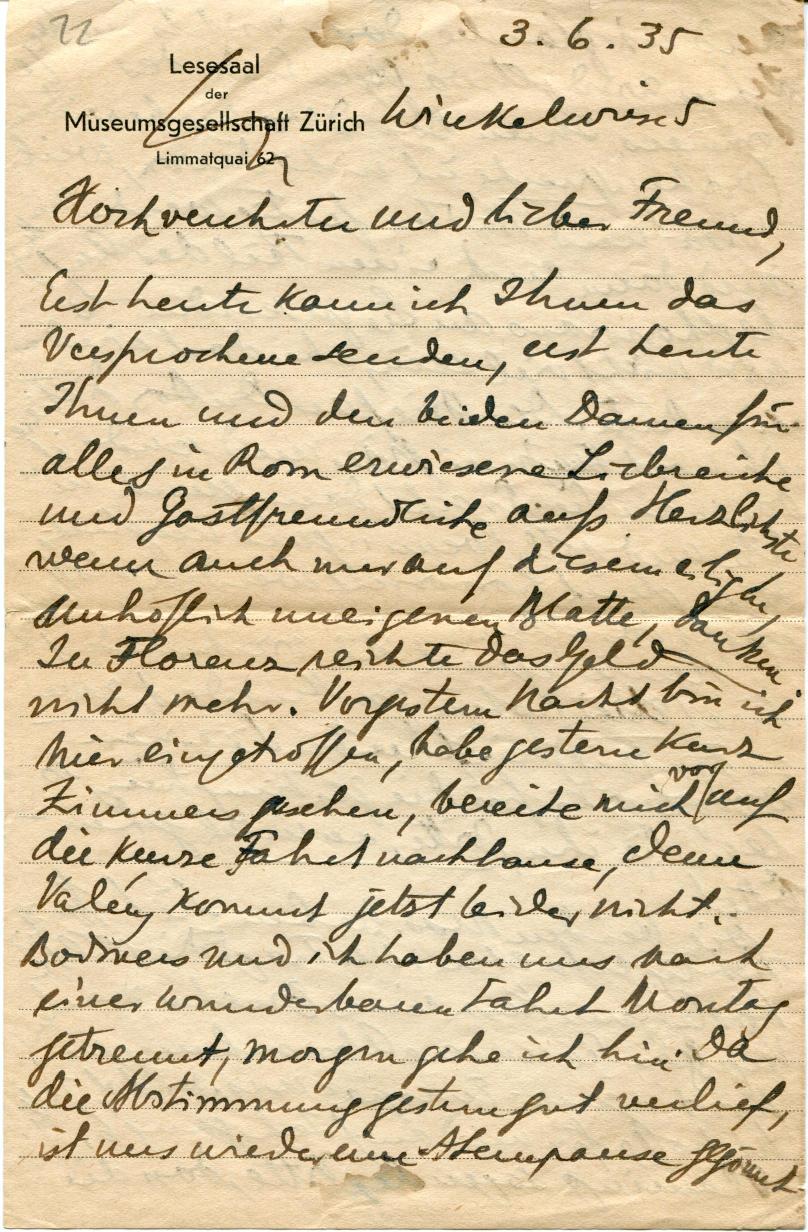 22
3. 6. 35
Lesesaal
der
Museumsgesellschaft Zürich
Limmatquai 62
Winkelwiese 5
Hochverehrter und lieber Freund,
Erst heute kann ich Ihnen das
Versprochene senden, erst heute
Ihnen und den beiden Damen für
alles in Rom erwiesene Liebreiche
und Gastfreundliche aufs Herzlichste
wenn auch nur auf diesem eiligen,
unhöflich uneigenen Blatte, danken.
In Florenz reichte das Geld
nicht mehr. Vorgestern Nacht bin ich
hier eingetroffen, habe gestern kurz
Zimmers gesehen, bereite mich vor auf
die kurze Fahrt nachhause, denn
Valéry kommt jetzt leider nicht.
Bodmers und ich haben uns nach
einer wunderbaren Fahrt Montag
getrennt, morgen gehe ich hin. Da
die Abstimmung gestern gut verlief,
ist uns wieder eine Atempause gegönnt.